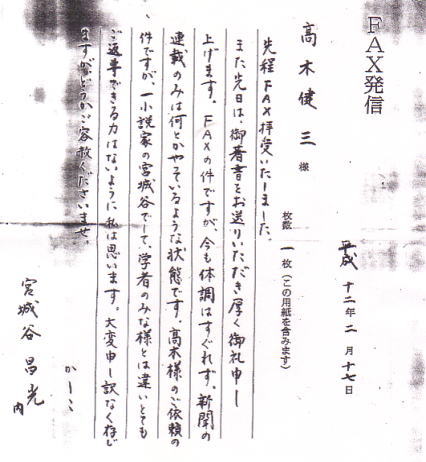 FAX発信
平成 十二年 二月 十七日
高木健三 様
枚数 一 枚（この用紙を含みます）
先程FAX拝受いたしました。
また先日は、御著書をお送りいただき厚く御礼申し
上げます。FAXの件ですが、今も体調はすぐれず。新聞の
連載のみは何とかやっているような状態です。高木様のご依頼の
件ですが、一小説家の宮城谷でして、学者のみな様とは違いとても
ご返事できる力はないように私は思います。大変申し訳なく存じ
ますがどうかご容赦くださいませ。
かしこ
宮城谷昌光
内